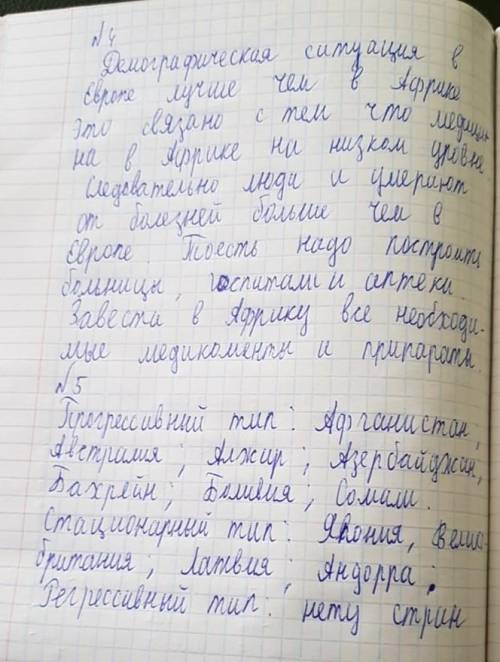 №4
Демографическая ситуация в
Европе лучше чем в Африке
Это связано с тем что медици-
на в Африке на низком уровне
Следовательно люди и умерают
от болезней больше чем в
Европе. Тоесть надо построить
больницы, госпитали и аптеки.
Завести в Африку все необходи-
мые медикоменты и припараты.
№5
Прогрессивный тип: Афганистан,
Австралия; Алжир; Азербайджан,
Бахрейн; Боливия; Сомали.
Стационарный тип: Япония, Велико
британия; Латвия; Андорра;
Регрессивный тип: нету стран